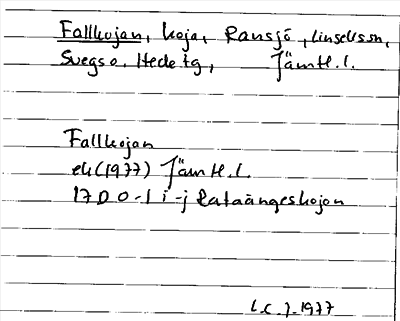 Fallkojan, koja, Ransjö, Linsells sn,
Svegs o. Hede tg, Jämtl. l.
Fallkojan
ek (1977) Jämtl. l.
17D 0-1 i-j Rataängeskojan
L.C.J. 1977